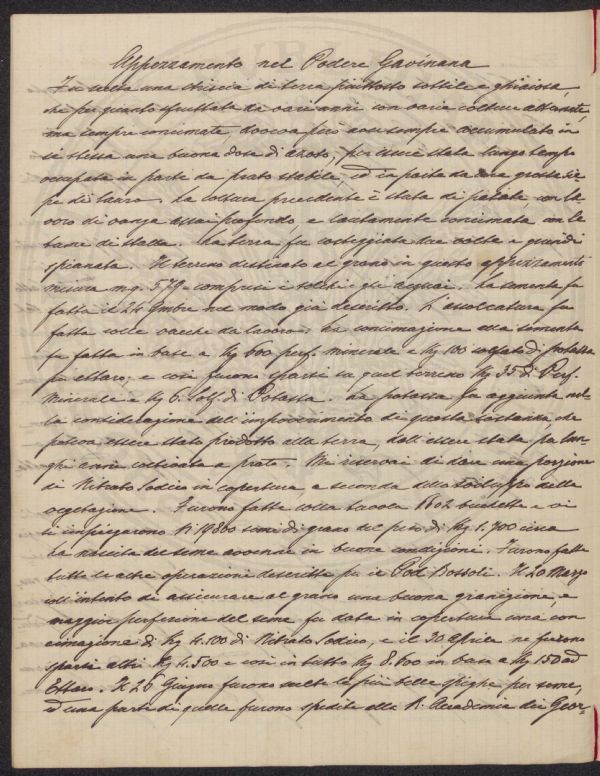 Appezzamento nel Podere Gavinana
Fu scelta una striscia di terra piuttosto sottile e ghiaiosa,
che per quanto sfruttata da vari anni con varie colture alternate,
ma sempre concimate, doveva però aver sempre accumulato in
se stessa una buona dose di azoto, per essere stata lungo tempo
occupata in parte da prato stabile, ed in parte da una grossa sie=
pe di lauro. La coltura precedente è stata di patate con la
voro di vanga assai profondo e lautamente concimata con le
tame di stalla. La terra fu costeggiata due volte e quindi
spianata. Il terreno destinato al grano in questo appezzamento
misura mq. 579 compresi i solchi e gli acquai. La sementa fu
fatta il 24 9mbre nel modo già descritto. L'assolcatura fu
fatta colle vacche da lavoro. La concimazione alla sementa
fu fatta in base a Kg 600 perf. minerale e Kg 100 solfato di potassa
per ettaro, e così furono sparsi su quel terreno Kg 35 di Perf.
Minerale e Kg 6. Solf. di Potassa. La potassa fu aggiunta nel=
la considerazione dell'impoverimento di questa sostanza, che
poteva essere stato prodotto alla terra, dall'essere stata per lun=
ghi anni coltivata a prato. Mi riservai di dare una porzione
di Nitrato Sodico in copertura, a seconda dello sviluppo della
vegetazione. Furono fatte colla tavola 6602 buchette e vi
si impiegarono N. 19800 semi di grano del peso di Kg 1.700 circa
La nascita del seme avvenne in buone condizioni. Furono fatte
tutte le altre operazioni descritte per il Pod. Bossoli. Il 20 Marzo
coll'intento di assicurare al grano una buona granigione, e
maggior perfezione del seme, fu data in copertura una con
cimazione di Kg 4.100 di Nitrato Sodico, e il 30 Aprile ne furono
sparsi altri Kg 4.500 e così in tutto Kg 8.600 in base a Kg 150 ad
Ettaro. Il 26 Giugno furono scelte le più belle spighe per seme,
ed una parte di quelle furono spedite alla R. Accademia dei Geor=